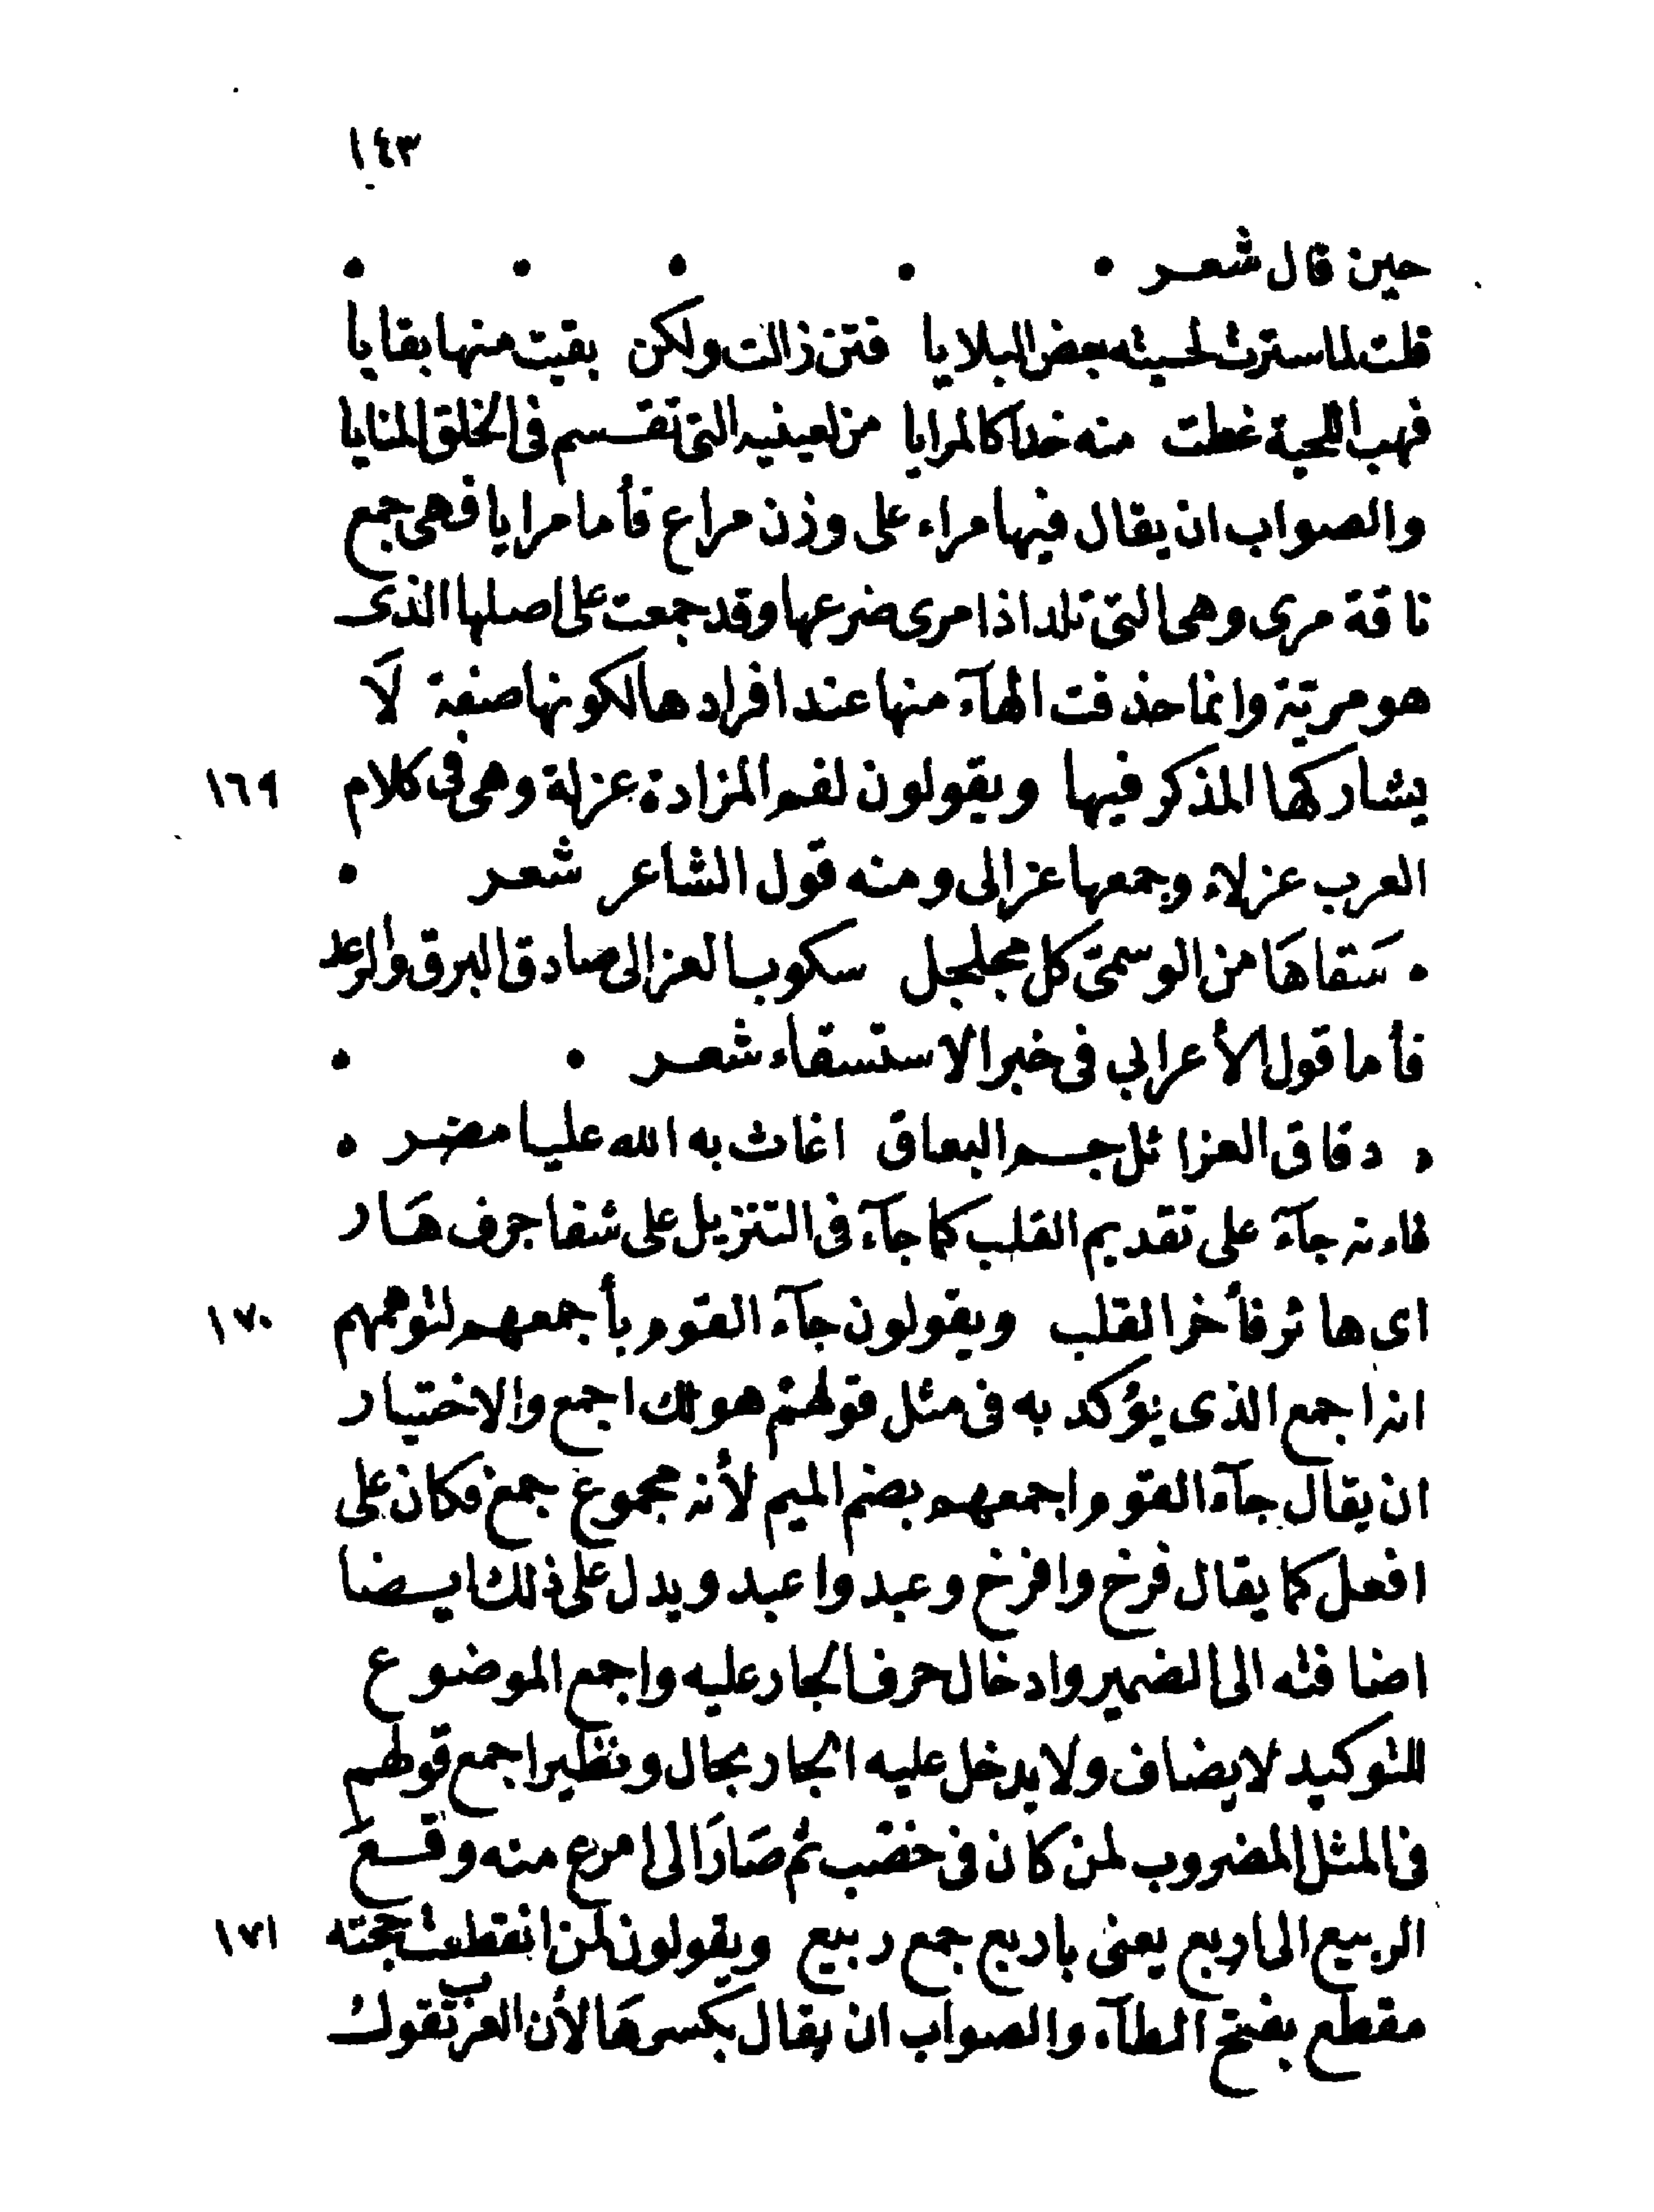 ١٤٣
حين قال شعر . . . . .
قلت لما سترت لحيته بعض البلايا فتن زالت ولكن بقيت منها بقايا
فهب اللحية غطت منه خدا كالمرايا من لعينيه التى تقسم فى الخلق المنايا
والصواب ان يقال فيها مراء على وزن مراع فأما مرايا فهى جمع
ناقة مرى وهى التى تلد اذا مرى ضرعها وقد جمعت على اصلها الذى
هو مرية وانما حذفت الهآء منها عند افرادها لكونها صفة لَا
يشاركها المذكر فيها ويقولون لفم المزادة عزلة وهى فى كلام ١٦٩
العرب عزلاء وجمعها عزالى ومنه قول الشاعر شعر .
. سَقاهَا من الوسمىّ كل مجلجل سكوب العزالى صادق البرق والرعد
فأما قول الأعرابي فى خبر الاستسقاء شعر . .
. دقاق العزائل جم البعاق اغاث به الله عليا مضر .
فاءنه جآءَ على تقديم القلب كما جآء فى التنزيل على شفا جرف هَار
اى هائر فأخر القلب ويقولون جآء القوم بأجمعهم لتوهمهم ١٧٠
انه اجمع الذى يؤكد به فى مثل قولهم هو لك اجمع والاختيار
ان يقال جآء القوم واجمعهم بضم الميم لأنه مجموع جمع فكان على
افعل كما يقال فرخ وافرخ وعبد واعبد ويدل على ذلك ايضا
اضافته الى الضمير وادخال حرف الجار عليه واجمع الموضوع
للتوكيد لا يضاف ولا يدخل عليه الجار بحال ونظير اجمع قولهم
فى المثل المضروب لمن كان فى خضب ثم صَارَ الى امرع منه وقع
الربيع الى اربع يعنى باربع جمع ربيع ويقولون لمن انقطعت حجته ١٧١
مقطع بفتح الطآء والصواب ان يقال بكسرهَا لأن العرب تقول